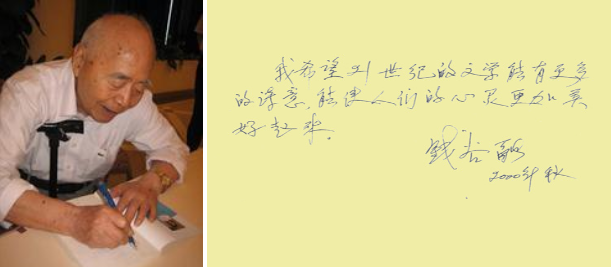 我希望21世纪的文学能有更多
的诗意,能使人们的心灵更加美
好起来。
钱谷融
2000年秋